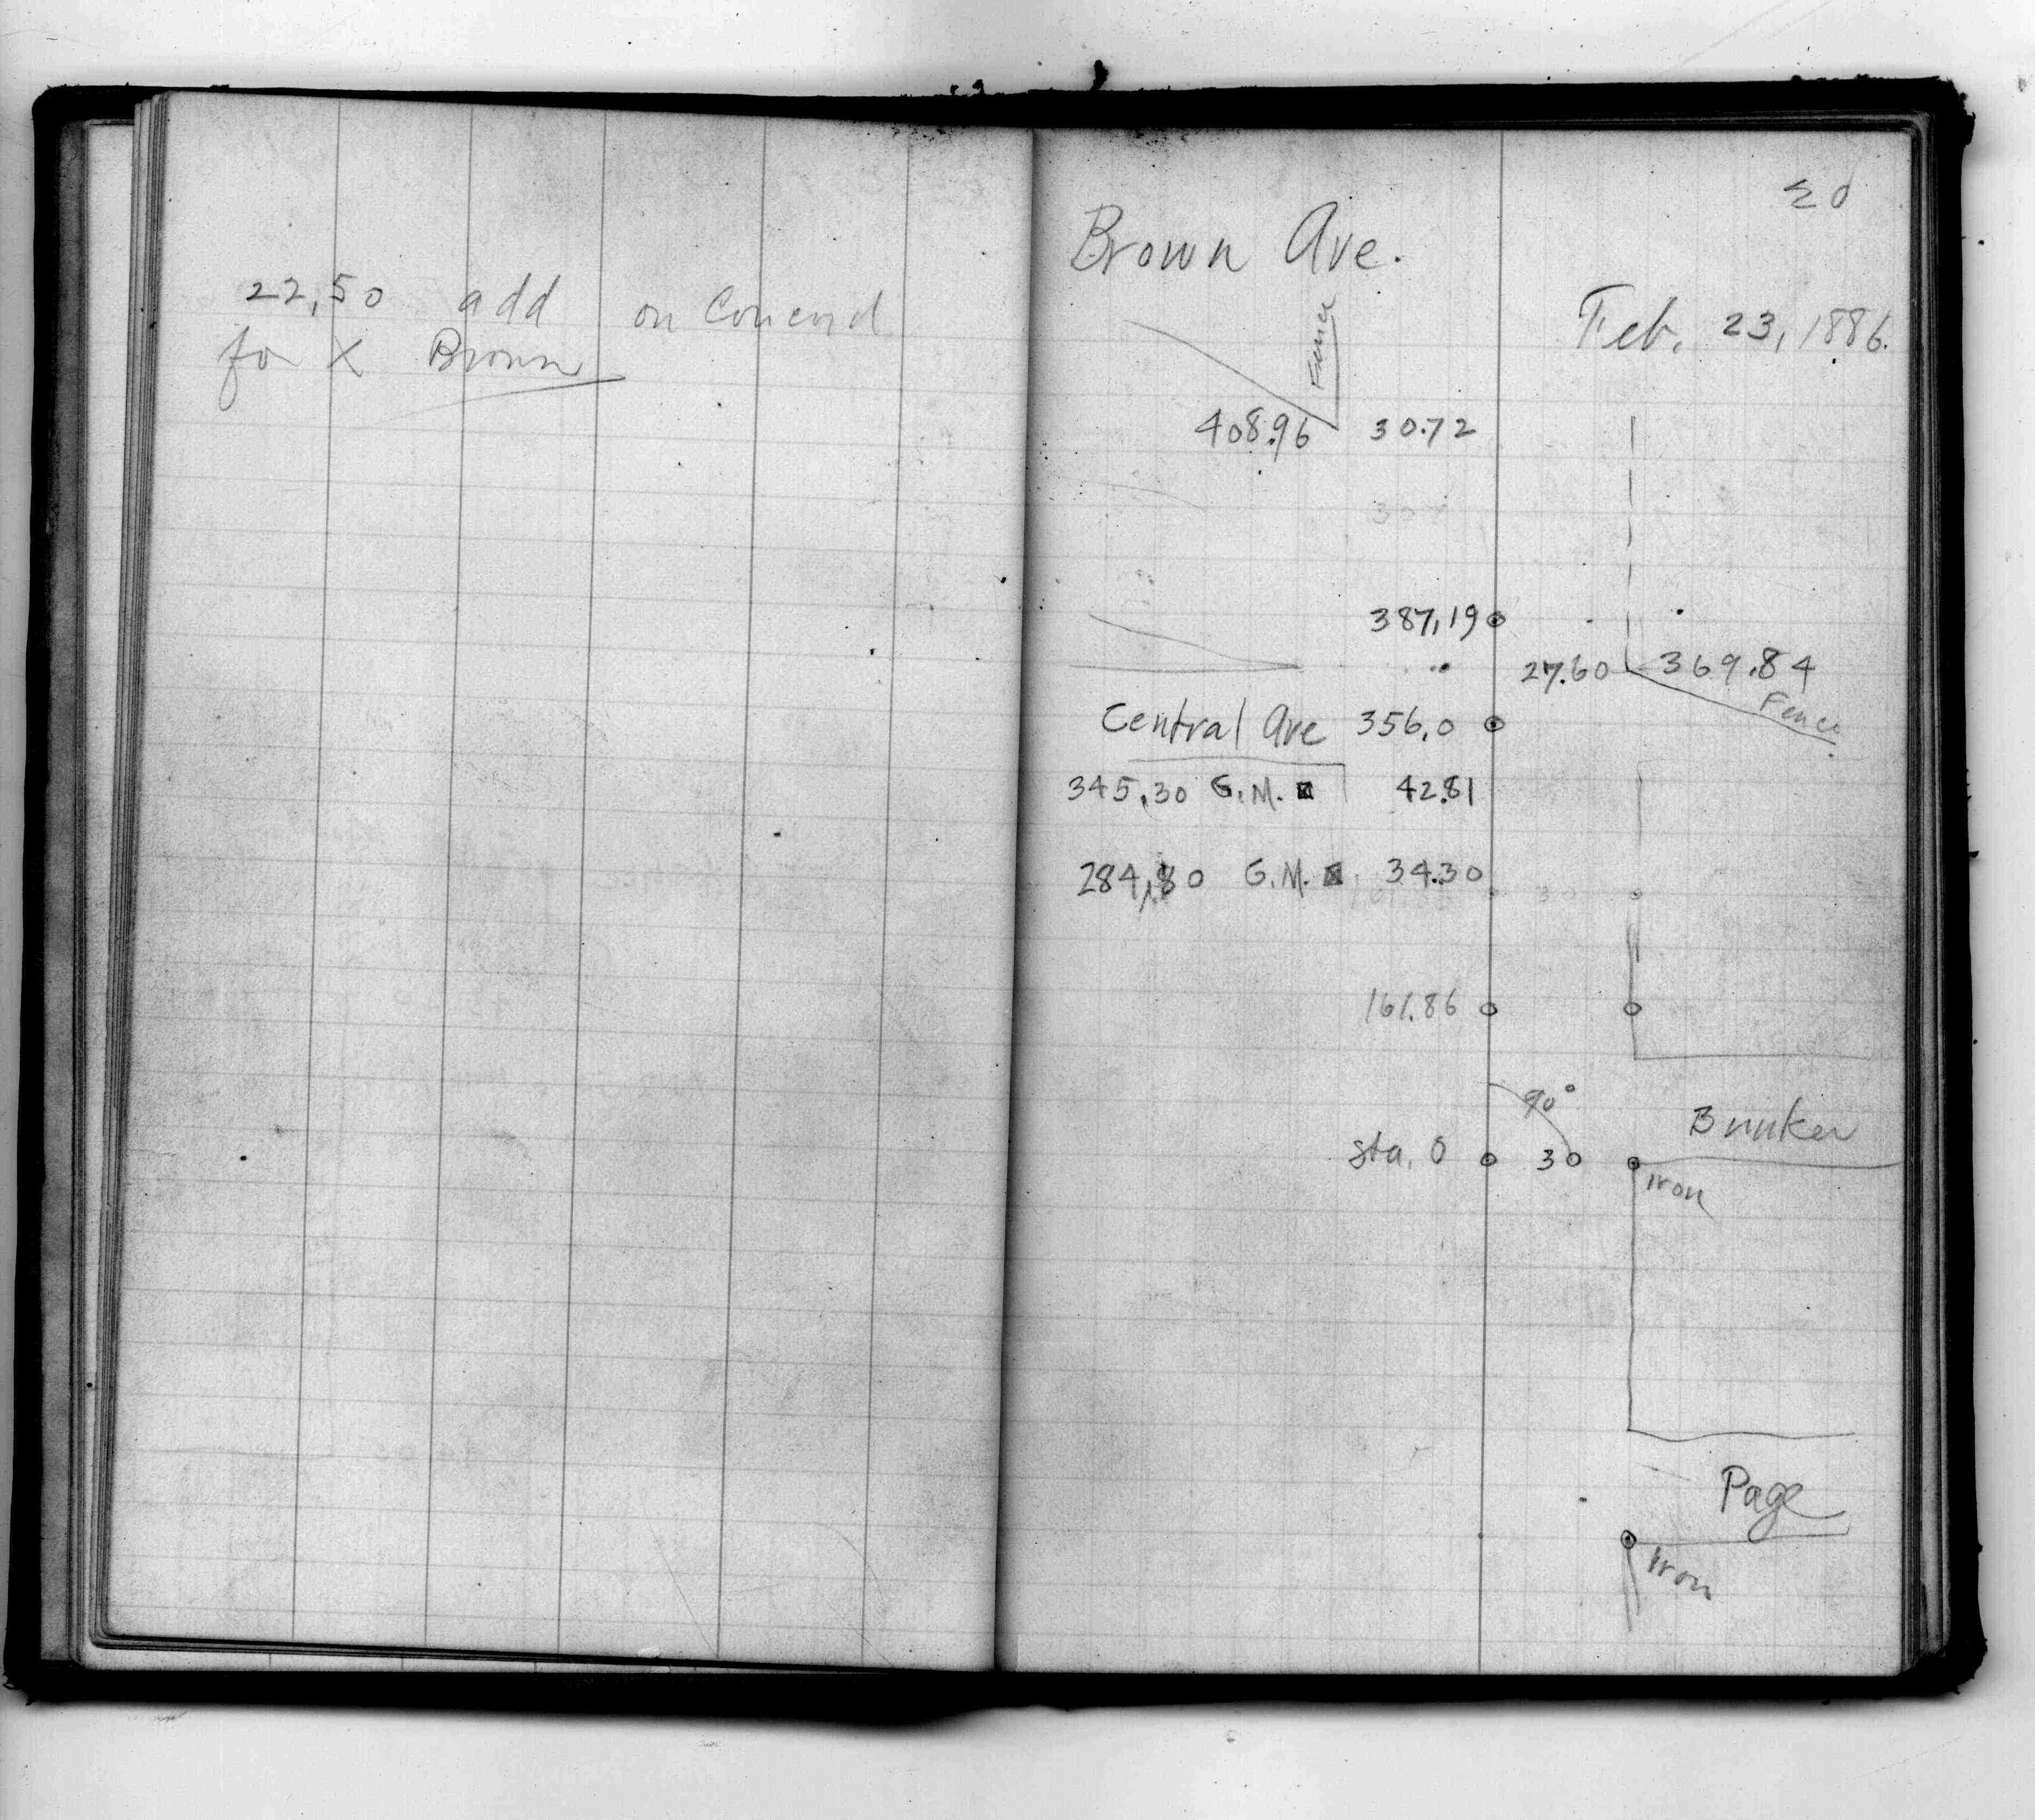 22,50 add on Concord
for X Brown
Brown Ave.
Feb. 23, 1886.
Fence
408.96 30.72
387,19
27.60 369.84
Fence
Central Ave 356,0
345,30 G.M. 42.81
284,80 G.M. 34.30
161.86
90°
Bunker
Sta. 0 30
Iron
Page
Iron